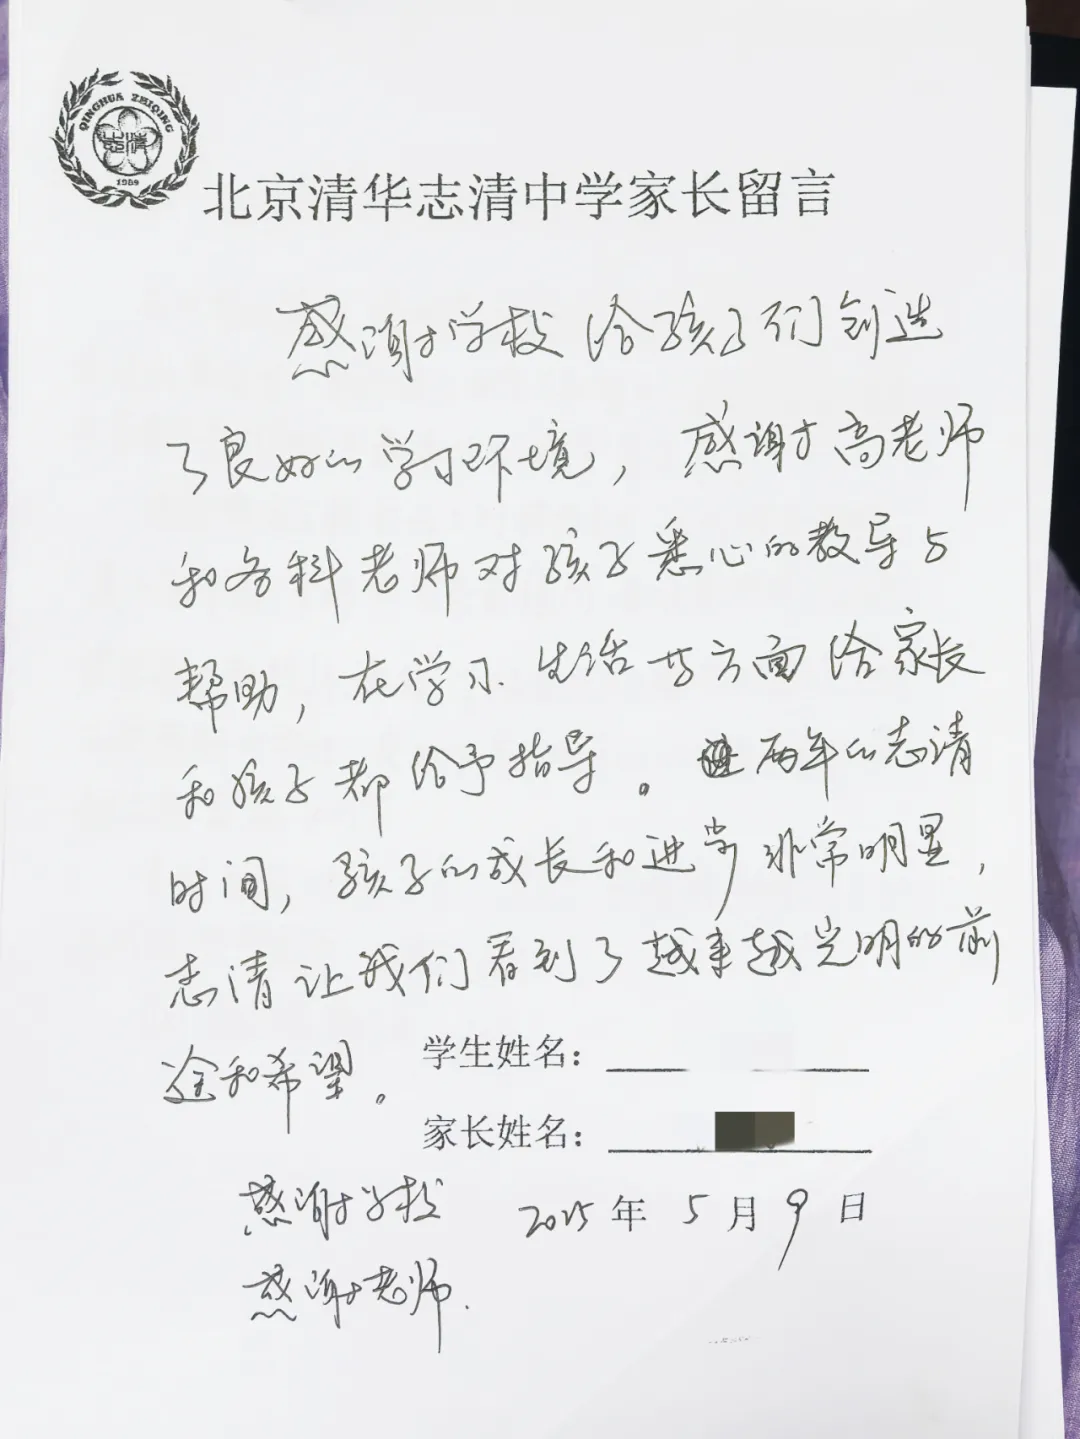 QINGHUA ZHIQING
志清
1984
北京清华志清中学家长留言
感谢学校给孩子们创造
了良好的学习环境，感谢高老师
和各科老师对孩子悉心的教导与
帮助，在学习、生活等方面给家长
和孩子都给予指导。两年的志清
时间，孩子的成长和进步非常明显，
志清让我们看到了越来越光明的前
途和希望。
学生姓名：
家长姓名：
感谢学校
2025年5月9日
感谢老师.